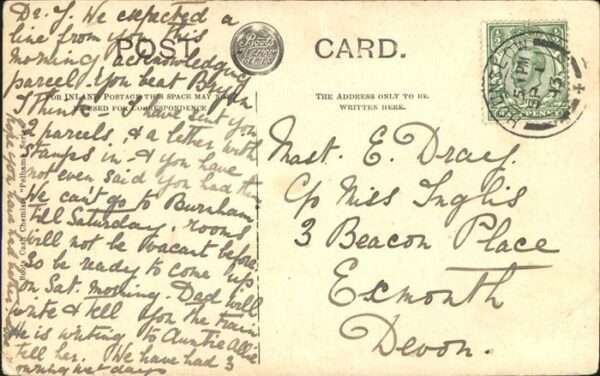 POST CARD.
FOR INLAND POSTAGE THIS SPACE MAY
USED FOR CORRESPONDENCE
THE ADDRESS ONLY TO BE
WRITTEN HERE.
Dr. J. We expected a
line from you this
morning acknowledging
parcel. You beat
I think - I have sent you
2 parcels, & a letter with
stamps in - & you have
not even said you had them
We can't go to Burnham
till Saturday, rooms
will not be vacant before
So be ready to come up
on Sat. morning. Dad will
write & tell you the train
He is writing to Auntie Allie
tell her. We have had 3
wet days
hope you have had better
Boots Cash Chemists "Pelham" Series
Mast. E. Dray.
C/o Miss Inglis
3 Beacon Place
Exmouth
Devon.
5 PM
SP
13